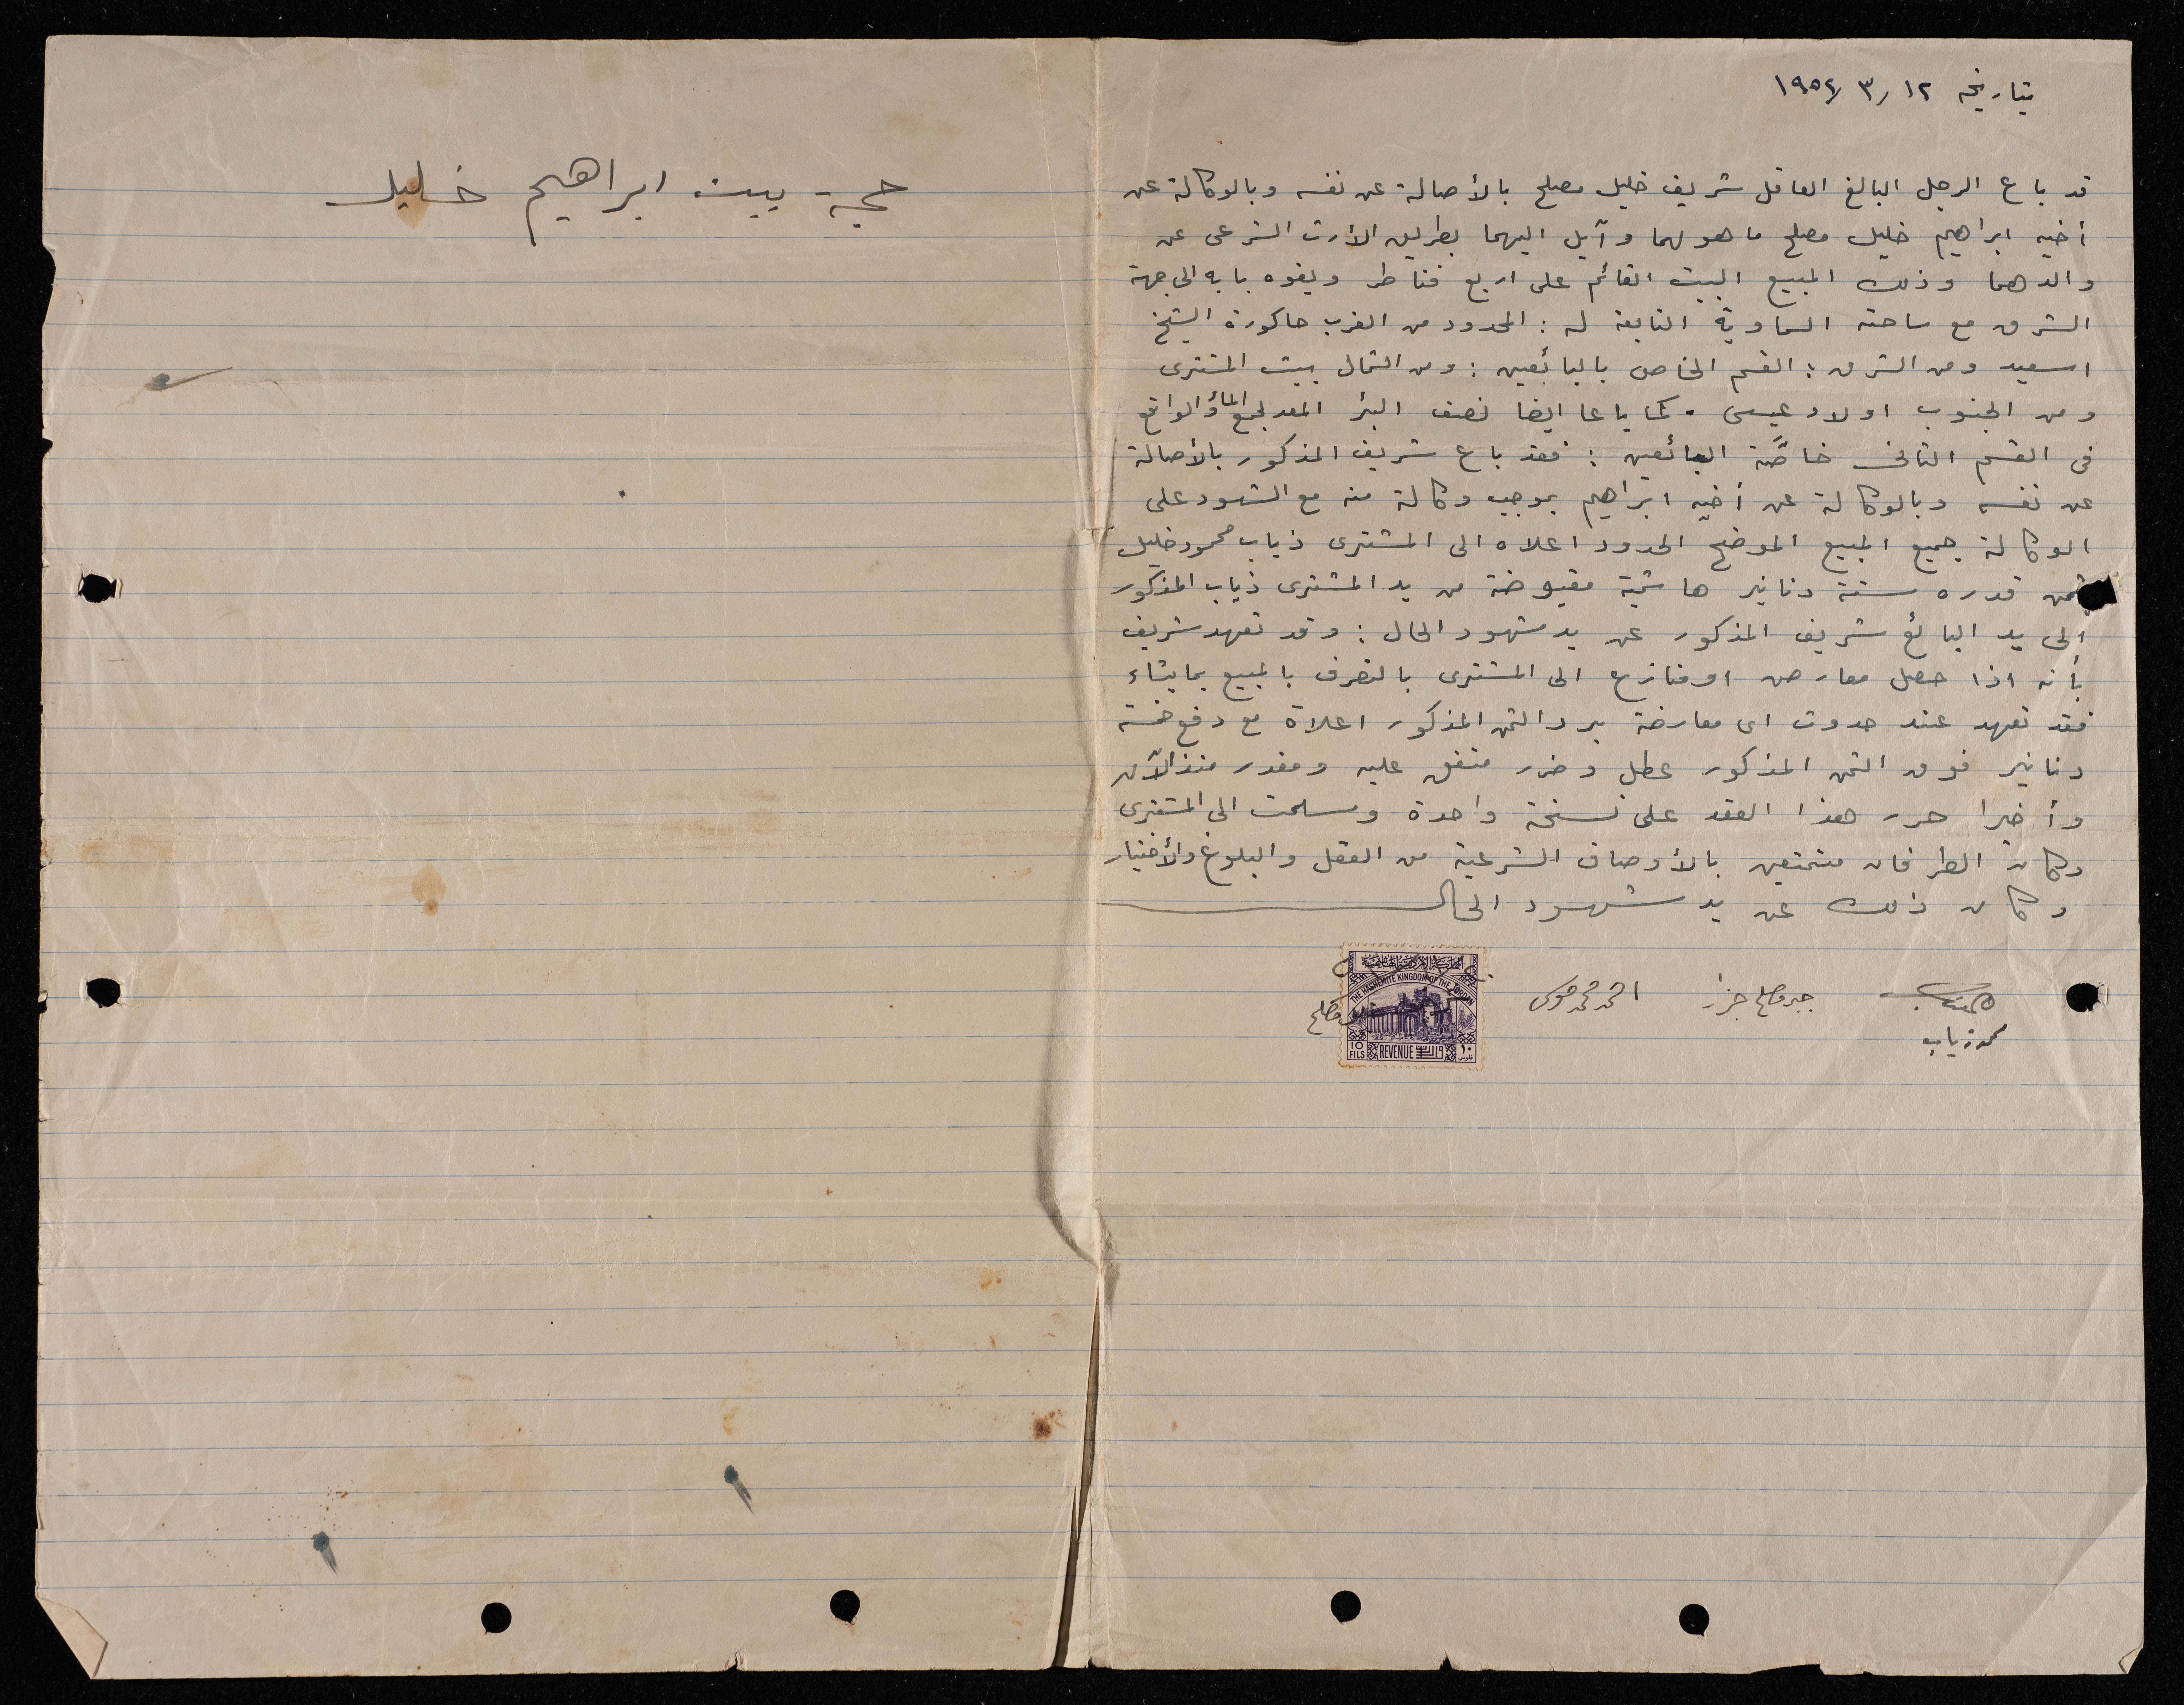 بتاريخه ١٢/ ٣/ ١٩٥٤
قد باع الرجل البالغ العاقل شريف خليل مصلح بالأصالة عن نفسه وبالوكالة عن
أخيه ابراهيم خليل مصلح ما هو لهما وآيل اليهما بطريق الأرث الشرعى عن
والدهما وذلك المبيع البيت القائم على اربع قناطر ويفوه بابه الى جهة
الشرق مع ساحته السماوية التابعة له : المحدود من الغرب حاكورة الشيخ
اسعيد ومن الشرق : القسم الخاص بالبائعين : ومن الشمال بيت المشترى
ومن الجنوب اولاد عيسى . كما باعا ايضا نصف البئر المعد لجمع الماء والواقع
فى القسم الثانى خاصَّة البائعين : فقد باع شريف المذكور بالأصالة
عن نفسه وبالوكالة عن أخيه ابراهيم بموجب وكالة منه مع الشهود على
الوكالة جميع المبيع الموضح الحدود اعلاه الى المشترى ذياب محمود خليل
بثمن قدره ستة دنانير هاشمية مقبوضة من يد المشترى ذياب المذكور
الى يد البائع شريف المذكور عن يد شهود الحال : وقد تعهد شريف
بأنه اذا حصل معارض او منازع الى المشترى بالتصرف بالمبيع بما يشاء
فقد تعهد عند حدوث اى معارضة برد الثمن المذكور اعلاه مع دفع خمسة
دنانير فوق الثمن المذكور عطل وضرر متفق عليه ومقدر منذ الآن
وأخيرا حرر هذا العقد على نسخة واحدة وسلمت الى المشترى
وكان الطرفان متمتعين بالأوصاف الشرعية من العقل والبلوغ والأختيار
وكان ذلك عن يد شهود الحال
محمد ذياب
جبر مصلح
احمد محمد موسى
مصلح
المملكة الأردنية الهاشمية
THE HASHEMITE KINGDOM OF THE JORDAN
10 FILS REVENUE واردات ١٠ فلس
حجة بيت ابراهيم خليل